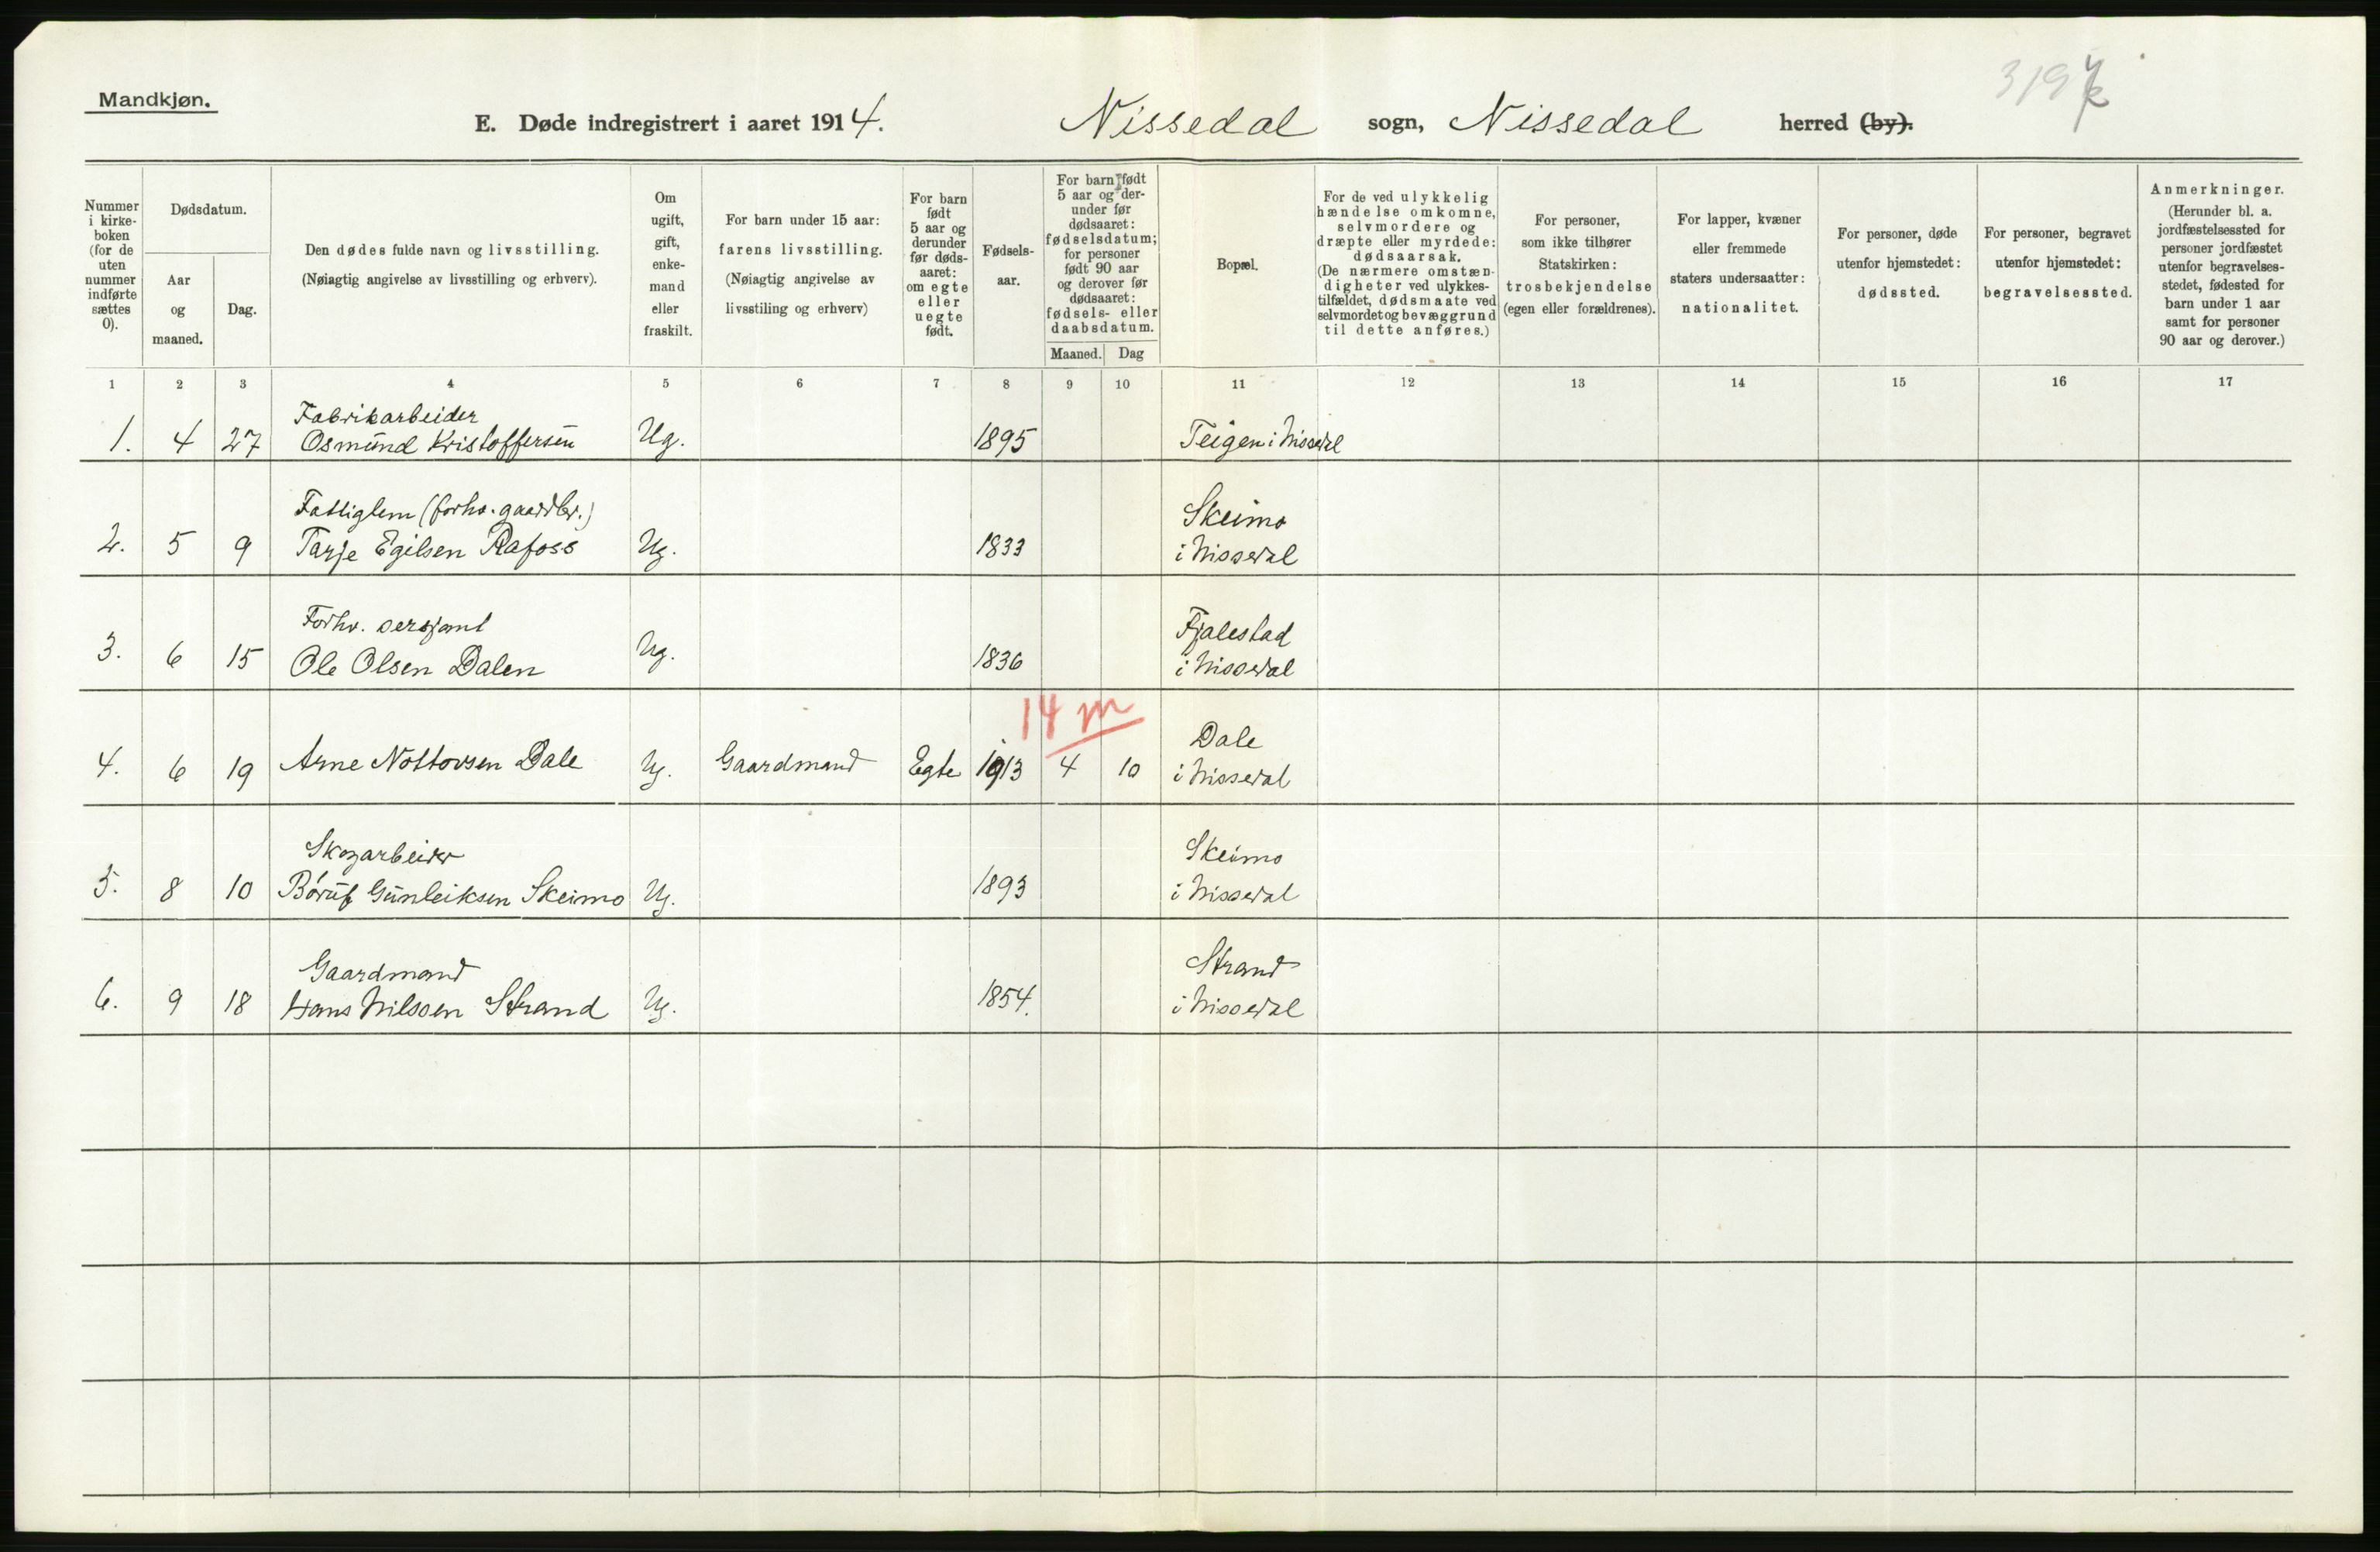 Mandkjøn.
E. Døde indregistrert i aaret 1914. Nissedal sogn, Nissedal herred (by).
Nummer i kirke-boken (for de uten nummer indførte sættes 0).
Dødsdatum.
Aar og maaned.
Dag.
Den dødes fulde navn og livsstilling.
(Nøiagtig angivelse av livsstilling og erhverv).
Om ugift, gift, enke-mand eller fraskilt.
For barn under 15 aar:
farens livsstilling.
(Nøiagtig angivelse av
livsstiling og erhverv)
For barn født 5 aar og derunder før døds-aaret: om egte eller uegte født.
Fødsels-aar.
For barn født 5 aar og der-under før dødsaaret: fødselsdatum; for personer født 90 aar og derover før dødsaaret: fødsels- eller daabsdatum.
Maaned. Dag
Bopæl.
For de ved ulykkelig hændelse omkomne, selvmordere og dræpte eller myrdede: dødsaarsak.
(De nærmere omstæn-digheter ved ulykkes-tilfældet, dødsmaate ved selvmordet og bevæggrund til dette anføres.)
For personer, som ikke tilhører Statskirken: trosbekjendelse (egen eller forældrenes).
For lapper, kvæner eller fremmede staters undersaatter: nationalitet.
For personer, døde utenfor hjemstedet: dødssted.
For personer, begravet utenfor hjemstedet: begravelsessted.
Anmerkninger.
(Herunder bl. a. jordfæstelsessted for personer jordfæstet utenfor begravelses-stedet, fødested for barn under 1 aar samt for personer 90 aar og derover.)
1 2 3 4 5 6 7 8 9 10 11 12 13 14 15 16 17
Fabrikarbeider
1. 4 27 Osmund Kristoffersen Ug. 1895 Teigen i Nissedal
Fattiglem (forhv. gaardbr.) Skeimo
2. 5 9 Tarje Egilsen Rafoss Ug. 1833 i Nissedal
Forhv. sersjant Fjalestad
3. 6 15 Ole Olsen Dalen Ug. 1836 i Nissedal
14 m Dale
4. 6 19 Arne Nottovsen Dale Ug. Gaardmand Egte 1913 4 10 i Nissedal
Skogarbeider Skeimo
5. 8 10 Børuf Gunleiksen Skeimo Ug. 1893 i Nissedal
Gaardmand Strand
6. 9 18 Hans Nilssen Strand Ug. 1854. i Nissedal